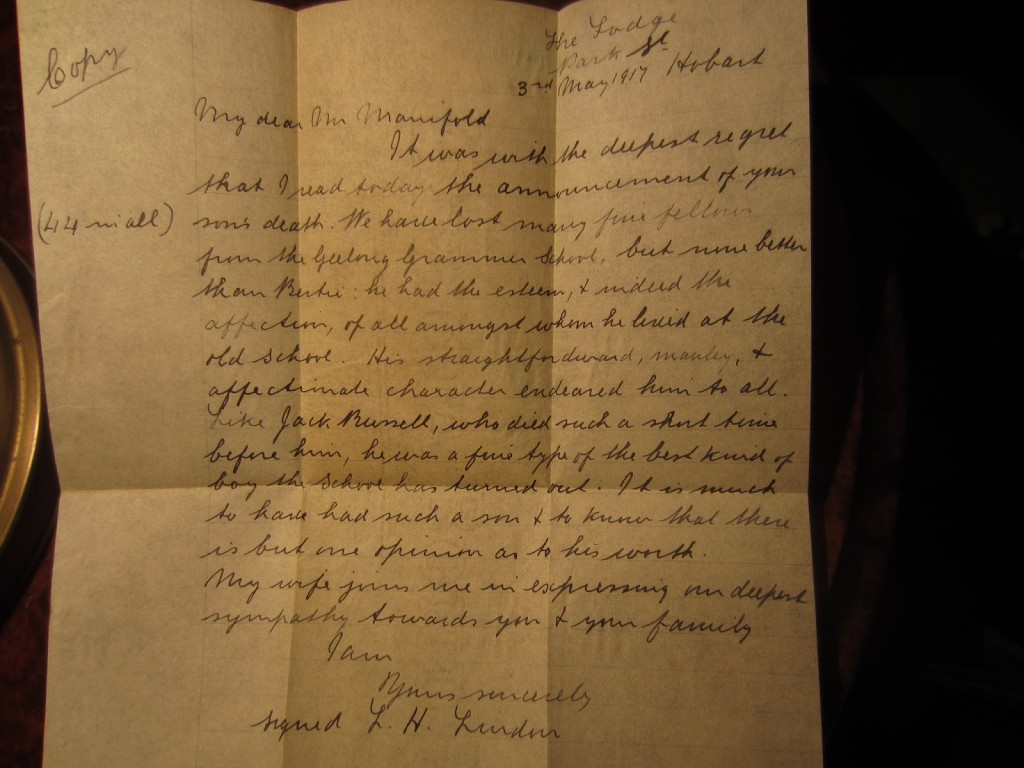 Copy
The Lodge
Park St
3rd May 1917 Hobart
My dear Mr Manifold
It was with the deepest regret
that I read today the announcement of your
(44 in all)
son's death. We have lost many fine fellows
from the Geelong Grammer School, but none better
than Bertie: he had the esteem, & indeed the
affection, of all amongst whom he lived at the
old school. His straightfordward, manley, &
affectionate character endeared him to all.
Like Jack Russell, who died such a short time
before him, he was a fine type of the best kind of
boy the School has turned out. It is much
to have had such a son & to know that there
is but one opinion as to his worth.
My wife joins me in expressing our deepest
sympathy towards you & your family
I am
Yours sincerely
signed L. H. Lindon